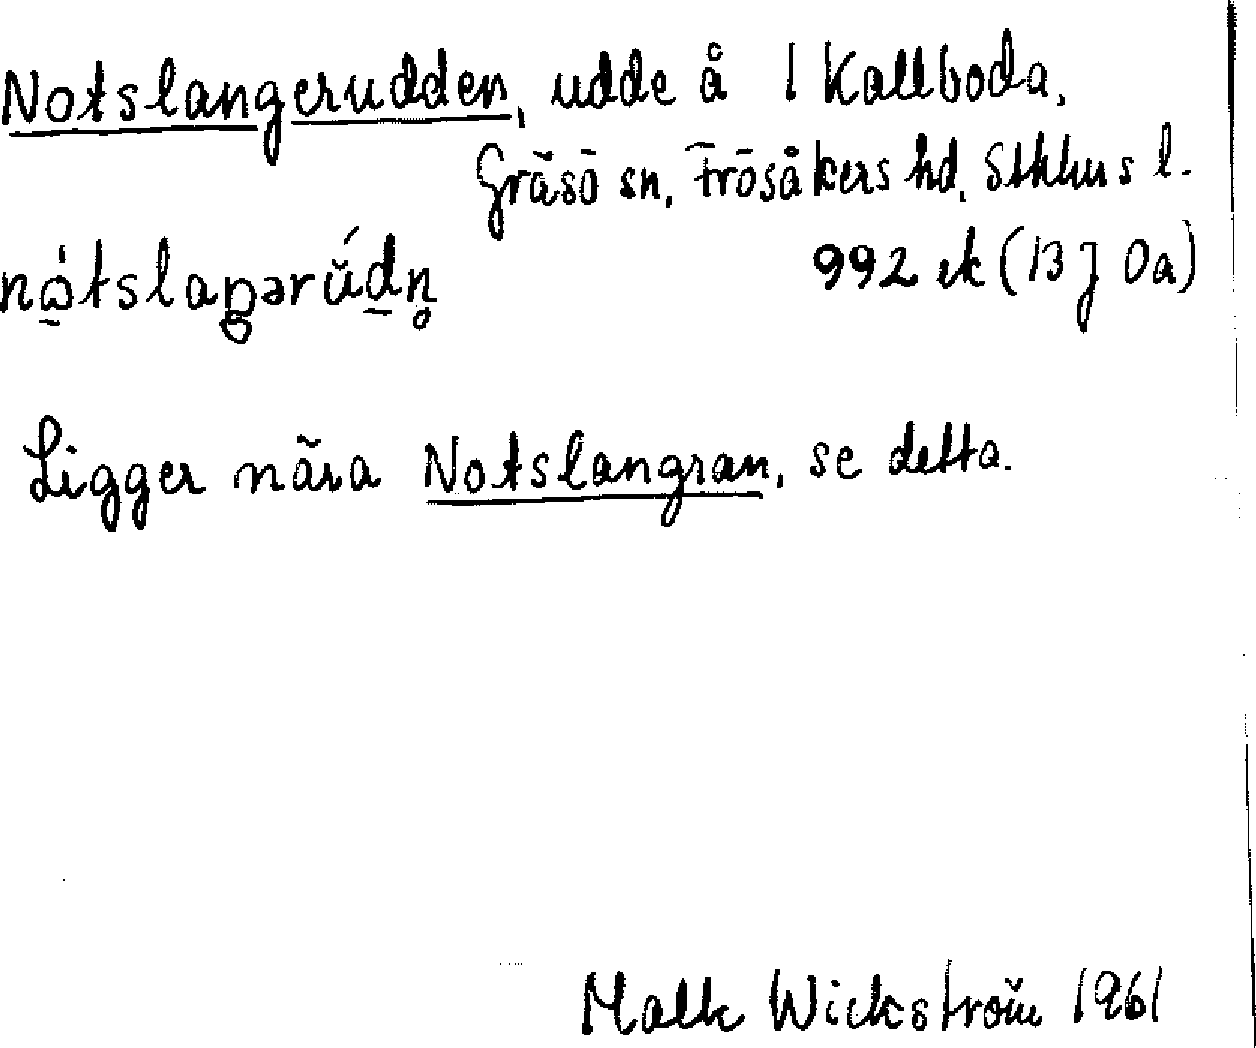 Notslangerudden, udde å 1 Kallboda,
Gräsö sn, Frösåkers hd, Sthlms l.
992 ek (13 J 0a)
Ligger nära Notslangran, se detta.
Wickström 1961